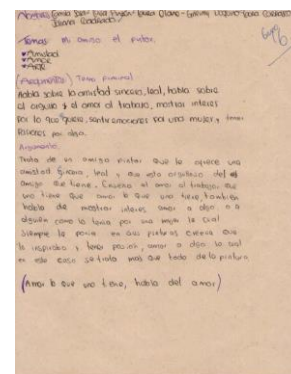 Temas: Mi amigo el pintor
*Amistad
*Amor
*Arte
(Argumento) Tema principal
Habla sobre la amistad sincera, leal, habla sobre
el orgullo y el amor al trabajo, mostrar interes
por lo que quiere, sentir emociones por una mujer, y tener
pasiones por algo.
Argumento:
Trata de un amigo pintor que le ofrece una
amistad sincera, leal, y que esta orgulloso del
amigo que tiene. el amor al trabajo, que
uno tiene que amar lo que uno tiene, también
habla de mostrar interes amor a algo o a
alguien como lo tenia por una mujer la cual
siempre le ponia en sus pinturas
lo inspiraba y tener pasion, amor a algo lo cual
en este caso se trata mas que todo de la pintura.
(Amar lo que uno tiene, habla del amor)